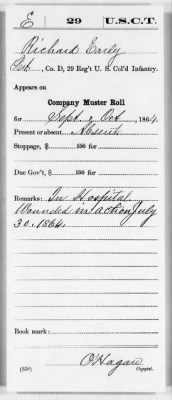 E 29 U.S.C.T.
Richard Early
Pvt., Co. D, 29 Reg't U. S. Col'd Infantry.
Appears on
Company Muster Roll
for Sept. & Oct, 1864.
Present or absent Absent
Stoppage, $ 100 for
Due Gov't, $ 100 for
Remarks: In Hospital
Wounded in action July
30. 1864.
Book mark:
O'Hagan
(358) Copyist.